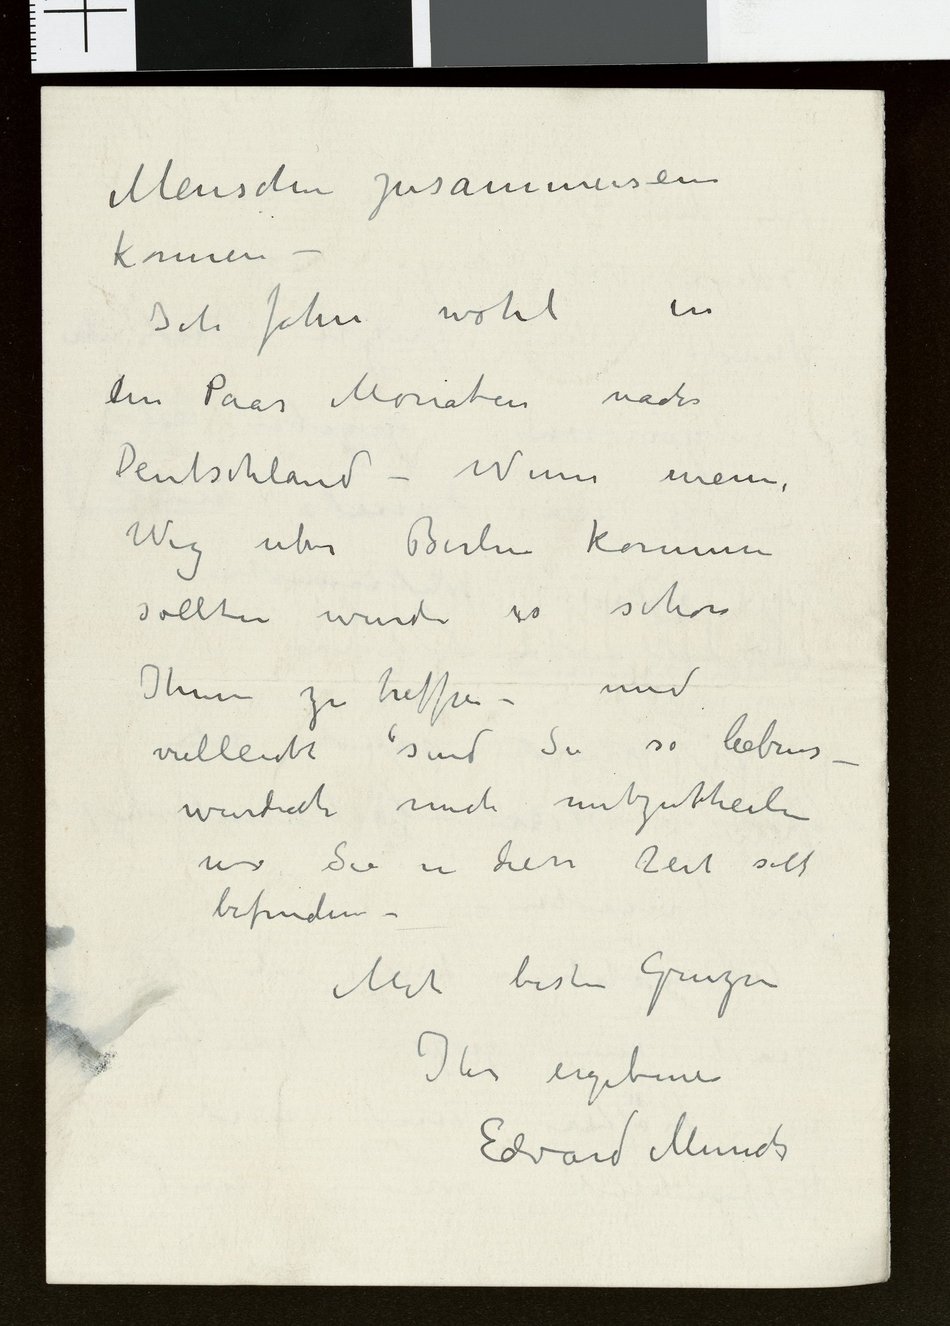 Menschen zusammensein
konnen –
Ich fahre wohl in
ein Paar Monaten nach
Deutschland – Wenn mein
Weg uber Berlin kommen
sollten wurde es schon
Ihnen zu treffen – und
vielleicht sind Sie so liebens_
wurdich mich mitzutheilen
wo Sie in dieser Zeit sich
befinden –
Mit besten Gruzen
Ihr ergebener
Edvard Munch